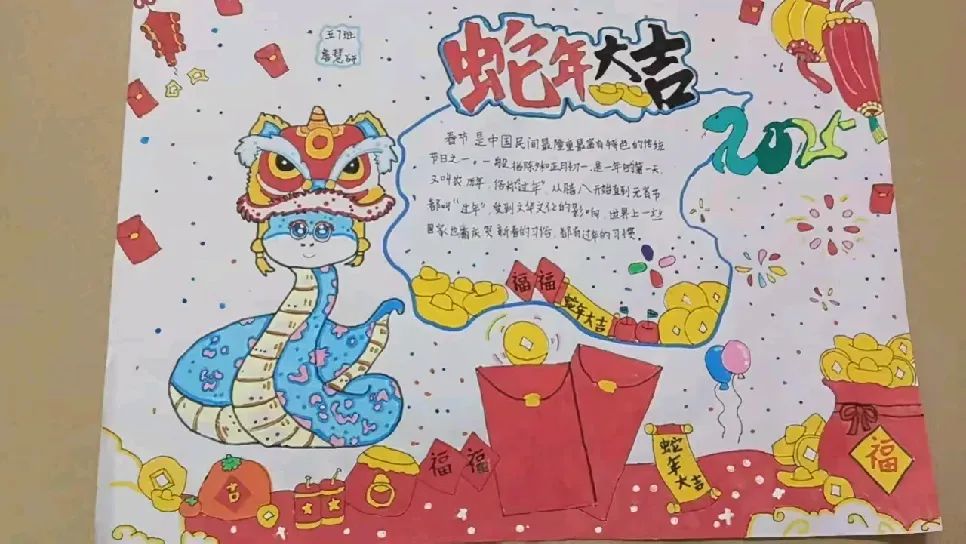 五7班
蛇年大吉
2025
春节是中国民间最隆重最富有特色的传统
节日之一,一般指除夕和正月初一,是一年的第一天,
又叫农历年,俗称"过年",从腊八开始直到元宵节
都叫"过年",受到文华文化的影响,世界上一些
国家也有庆贺新春的习俗,都有过年的习惯。
福
福
蛇年大吉
吉
福
福
蛇年大吉
福